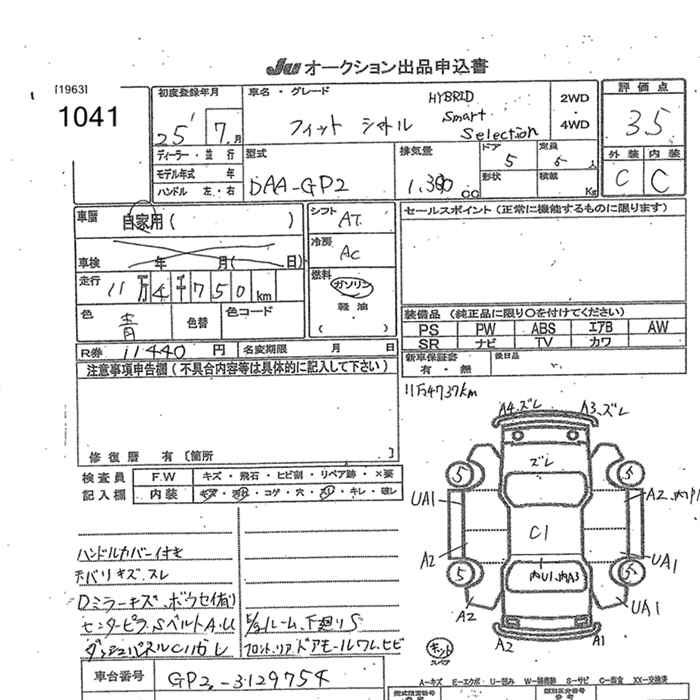 JU オークション出品申込書
[1963]
1041
初度登録年月
25' 7月
ディーラー・並行
モデル年式 年
ハンドル 左・右
車名・グレード
HYBRID
フィット シャトル Smart Selection
2WD
4WD
評価点
3.5
外装 内装
C C
型式
DAA-GP2
排気量
1.300 cc
ドア
5
定員
5 人
形状
積載
Kg
車歴 自家用( )
車検 年 月( 日)
走行 11万4千750km
色 青
色替
色コード
シフト AT
冷房 AC
燃料
ガソリン
軽油
( )
セールスポイント(正常に機能するものに限ります)
装備品(純正品に限り○を付けてください)
PS PW ABS エアB AW
SR ナビ TV カワ
新車保証書
有・無
後日品
R券 11440円
名変期限 月 日
注意事項申告欄(不具合内容等は具体的に記入して下さい)
11万4737km
修復歴 有〔箇所 〕
検査員
記入欄
F.W キズ・飛石・ヒビ割・リペア跡・×要
内装 キズ・汚れ・コゲ・穴・スレ・キレ・破レ
A4.ズレ A3.ズレ
ズレ
5 5
UA1 A2
C1
A2 UA1
内U1.内A3
5 5
A2 UA1
A2 A1
キット
スペア
ハンドルカバー付き
天バリキズ、スレ
Dミラーキズ、ボウセイ有)
センターピラ,SベルトA.U
ダッシュパネルCハガレ
E/gルーム、下廻りS
フロント,リアドアモールワレ、ヒビ
車台番号 GP2-3129754
A−キズ E−エクボ U−凹み W−補修跡 S−サビ C−腐食 XX−交換済